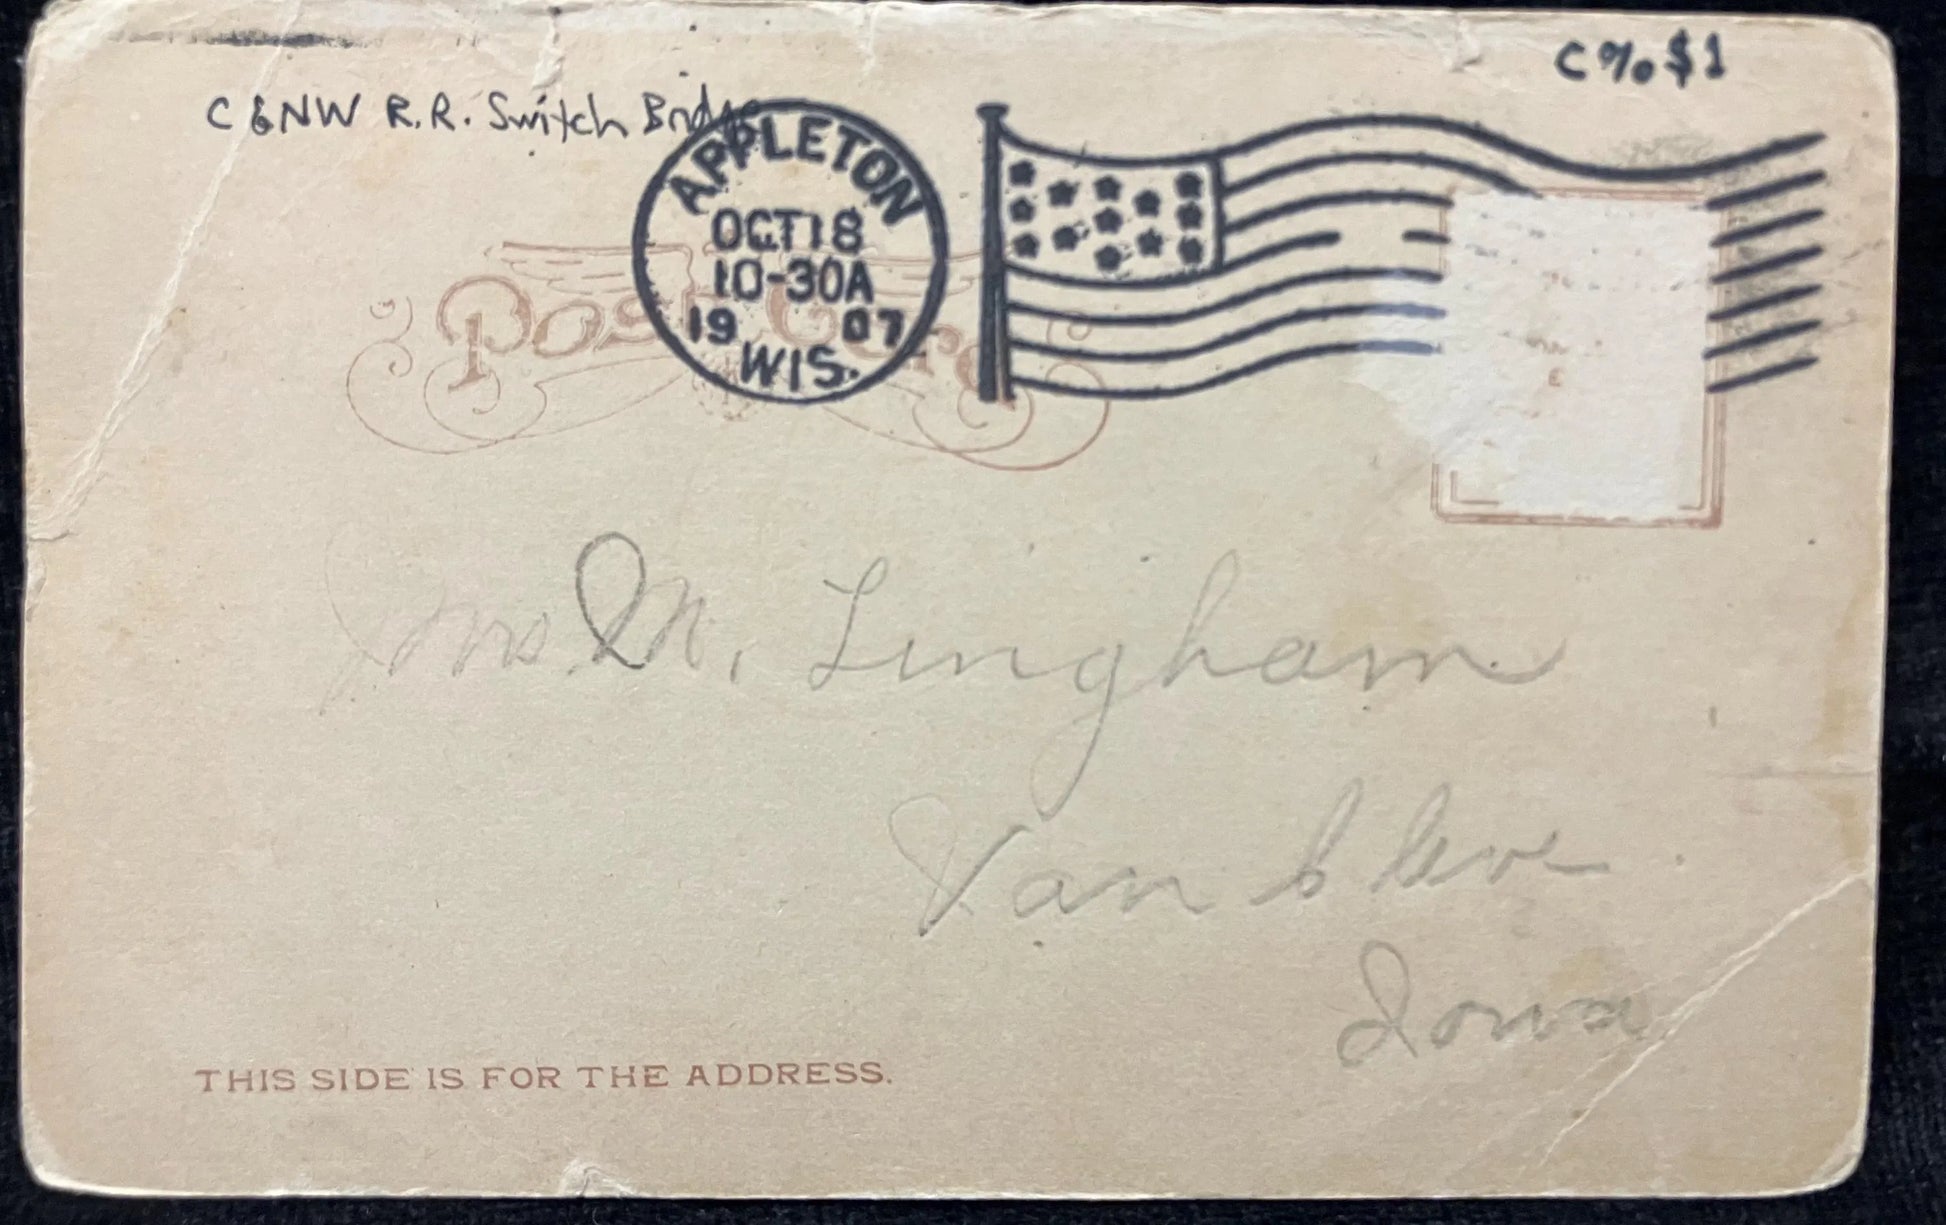 C % $1
C & NW R.R. Switch Bridge
APPLETON
OCT 18
10-30A
1907
WIS.
Post Card
Mrs. M. Lingham
Van Cleve
Iowa
THIS SIDE IS FOR THE ADDRESS.